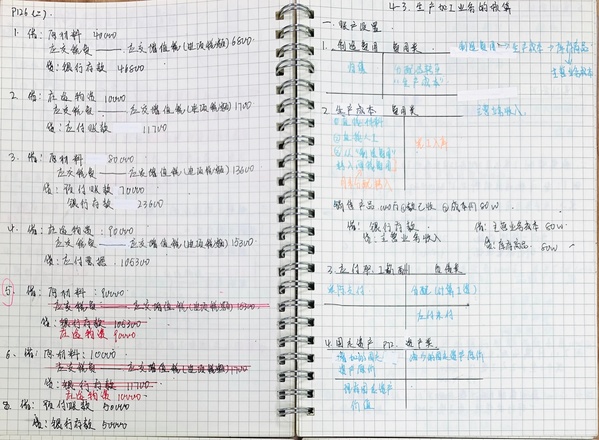 P126 (二)
1. 借: 原材料 40000
应交税费 —— 应交增值税(进项税额) 6800
贷: 银行存款 46800
2. 借: 在途物资 10000
应交税费 —— 应交增值税(进项税额) 1700
贷: 应付账款 11700
3. 借: 原材料 80000
应交税费 —— 应交增值税(进项税额) 13600
贷: 预付账款 70000
银行存款 23600
4. 借: 在途物资: 90000
应交税费 —— 应交增值税(进项税额) 15300
贷: 应付票据 105300
5. 借: 原材料: 90000
应交税费 —— 应交增值税(进项税额) 15300
贷: 银行存款 105300
在途物资 90000
6. 借: 原材料: 10000
应交税费 —— 应交增值税(进项税额) 1700
贷: 银行存款 11700
在途物资 10000
借: 预付账款 50000
贷: 银行存款 50000
4-3. 生产加工业务的核算
一. 账户设置
1. 制造费用 费用类 制造费用 → 生产成本 → 库存商品
主营业务成本
归集
"生产成本"
2. 生产成本 费用类 主营业务收入
①直接材料
②直接人工
③从"制造费用"
转入间接费用
完工入库
销售产品 款已收
借: 银行存款 借: 主营业务成本 60w
贷: 主营业务收入 贷: 库存商品 60w
3. 应付职工薪酬 负债类
实际支付 分配 (计算工资)
应付未付
4. 固定资产 资产类
增加的固定 减少的固定资产原价
资产原价
现有固定资产
价值